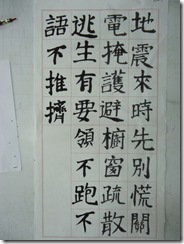 地震來時先別慌關
電掩護避櫥窗疏散
逃生有要領不跑不
語不推擠